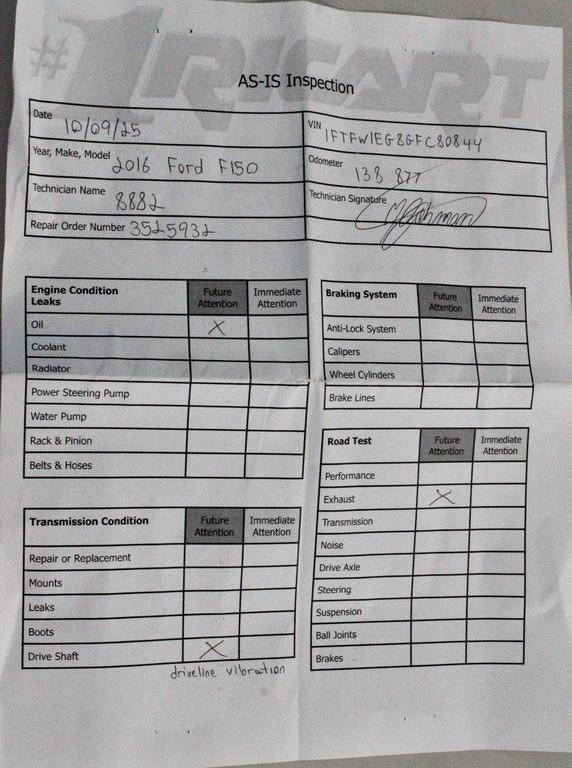 #1RICART
AS-IS Inspection
Date 10/09/25
VIN 1FTFW1EG8GFC80844
Year, Make, Model 2016 Ford F150
Odometer 138 877
Technician Name 8882
Technician Signature
Repair Order Number 3525932
Engine Condition Leaks Future Attention Immediate Attention
Oil X
Coolant
Radiator
Power Steering Pump
Water Pump
Rack & Pinion
Belts & Hoses
Braking System Future Attention Immediate Attention
Anti-Lock System
Calipers
Wheel Cylinders
Brake Lines
Transmission Condition Future Attention Immediate Attention
Repair or Replacement
Mounts
Leaks
Boots
Drive Shaft X
driveline vibration
Road Test Future Attention Immediate Attention
Performance
Exhaust X
Transmission
Noise
Drive Axle
Steering
Suspension
Ball Joints
Brakes